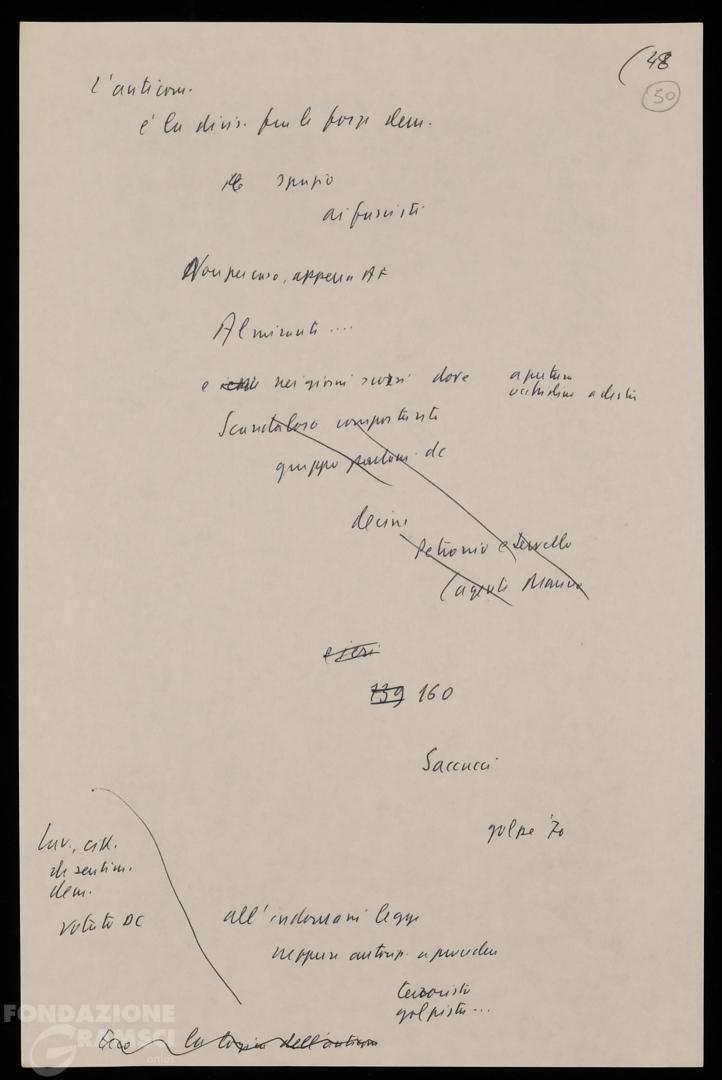 (48
50
L'anticom.
è la divis. fra le forze dem.
spazio
ai fascisti
Non per caso, appena AF
Almirante ....
e nei giorni scorsi dove apertura
occhiolino a destra
Scandaloso comportante
gruppo parlam. dc
decine
Petronio e Servello
(agente Marino
e ieri
139 160
Saccucci
golpe '70
Lav., citt.
di sentim.
dem.
votato DC
all'indomani legge
neppure autorizz. a proceder
terrorista
golpista...
Ecco la logica dell'anticom
FONDAZIONE
GRAMSCI
onlus